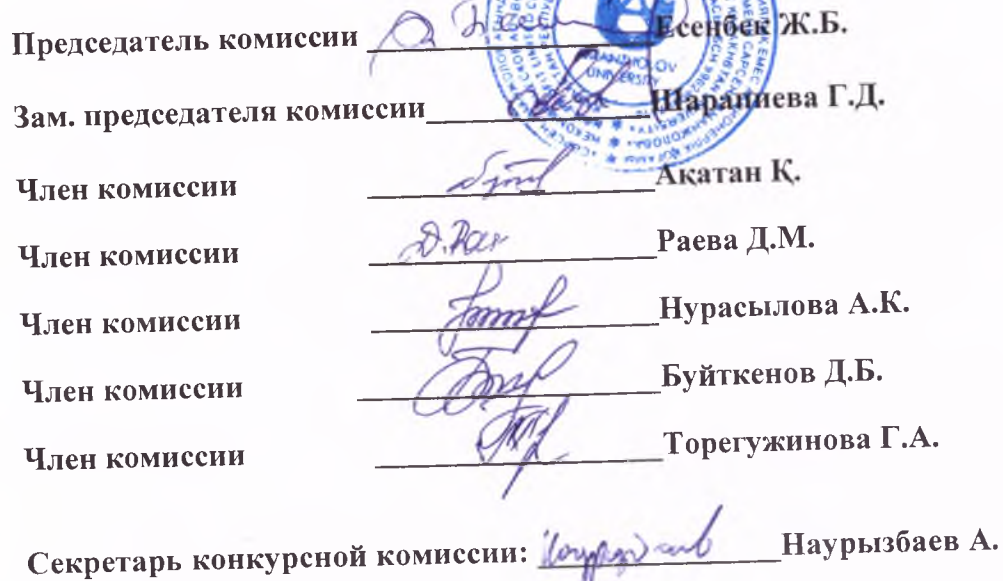 Председатель комиссии Есенбек Ж.Б.
Зам. председателя комиссии Шарапиева Г.Д.
Член комиссии Ақатан Қ.
Член комиссии Д.Рае Раева Д.М.
Член комиссии Нурасылова А.К.
Член комиссии Буйткенов Д.Б.
Член комиссии Торегужинова Г.А.
Секретарь конкурсной комиссии: Наурызбаев А.
AMANZHOLOV
UNIVERSITY